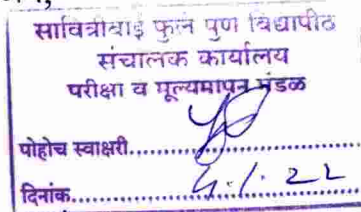 सावित्रीबाई फुले पुणे विद्यापीठ
संचालक कार्यालय
परीक्षा व मूल्यमापन मंडळ
पोहोच स्वाक्षरी..................
दिनांक.........5.1.22